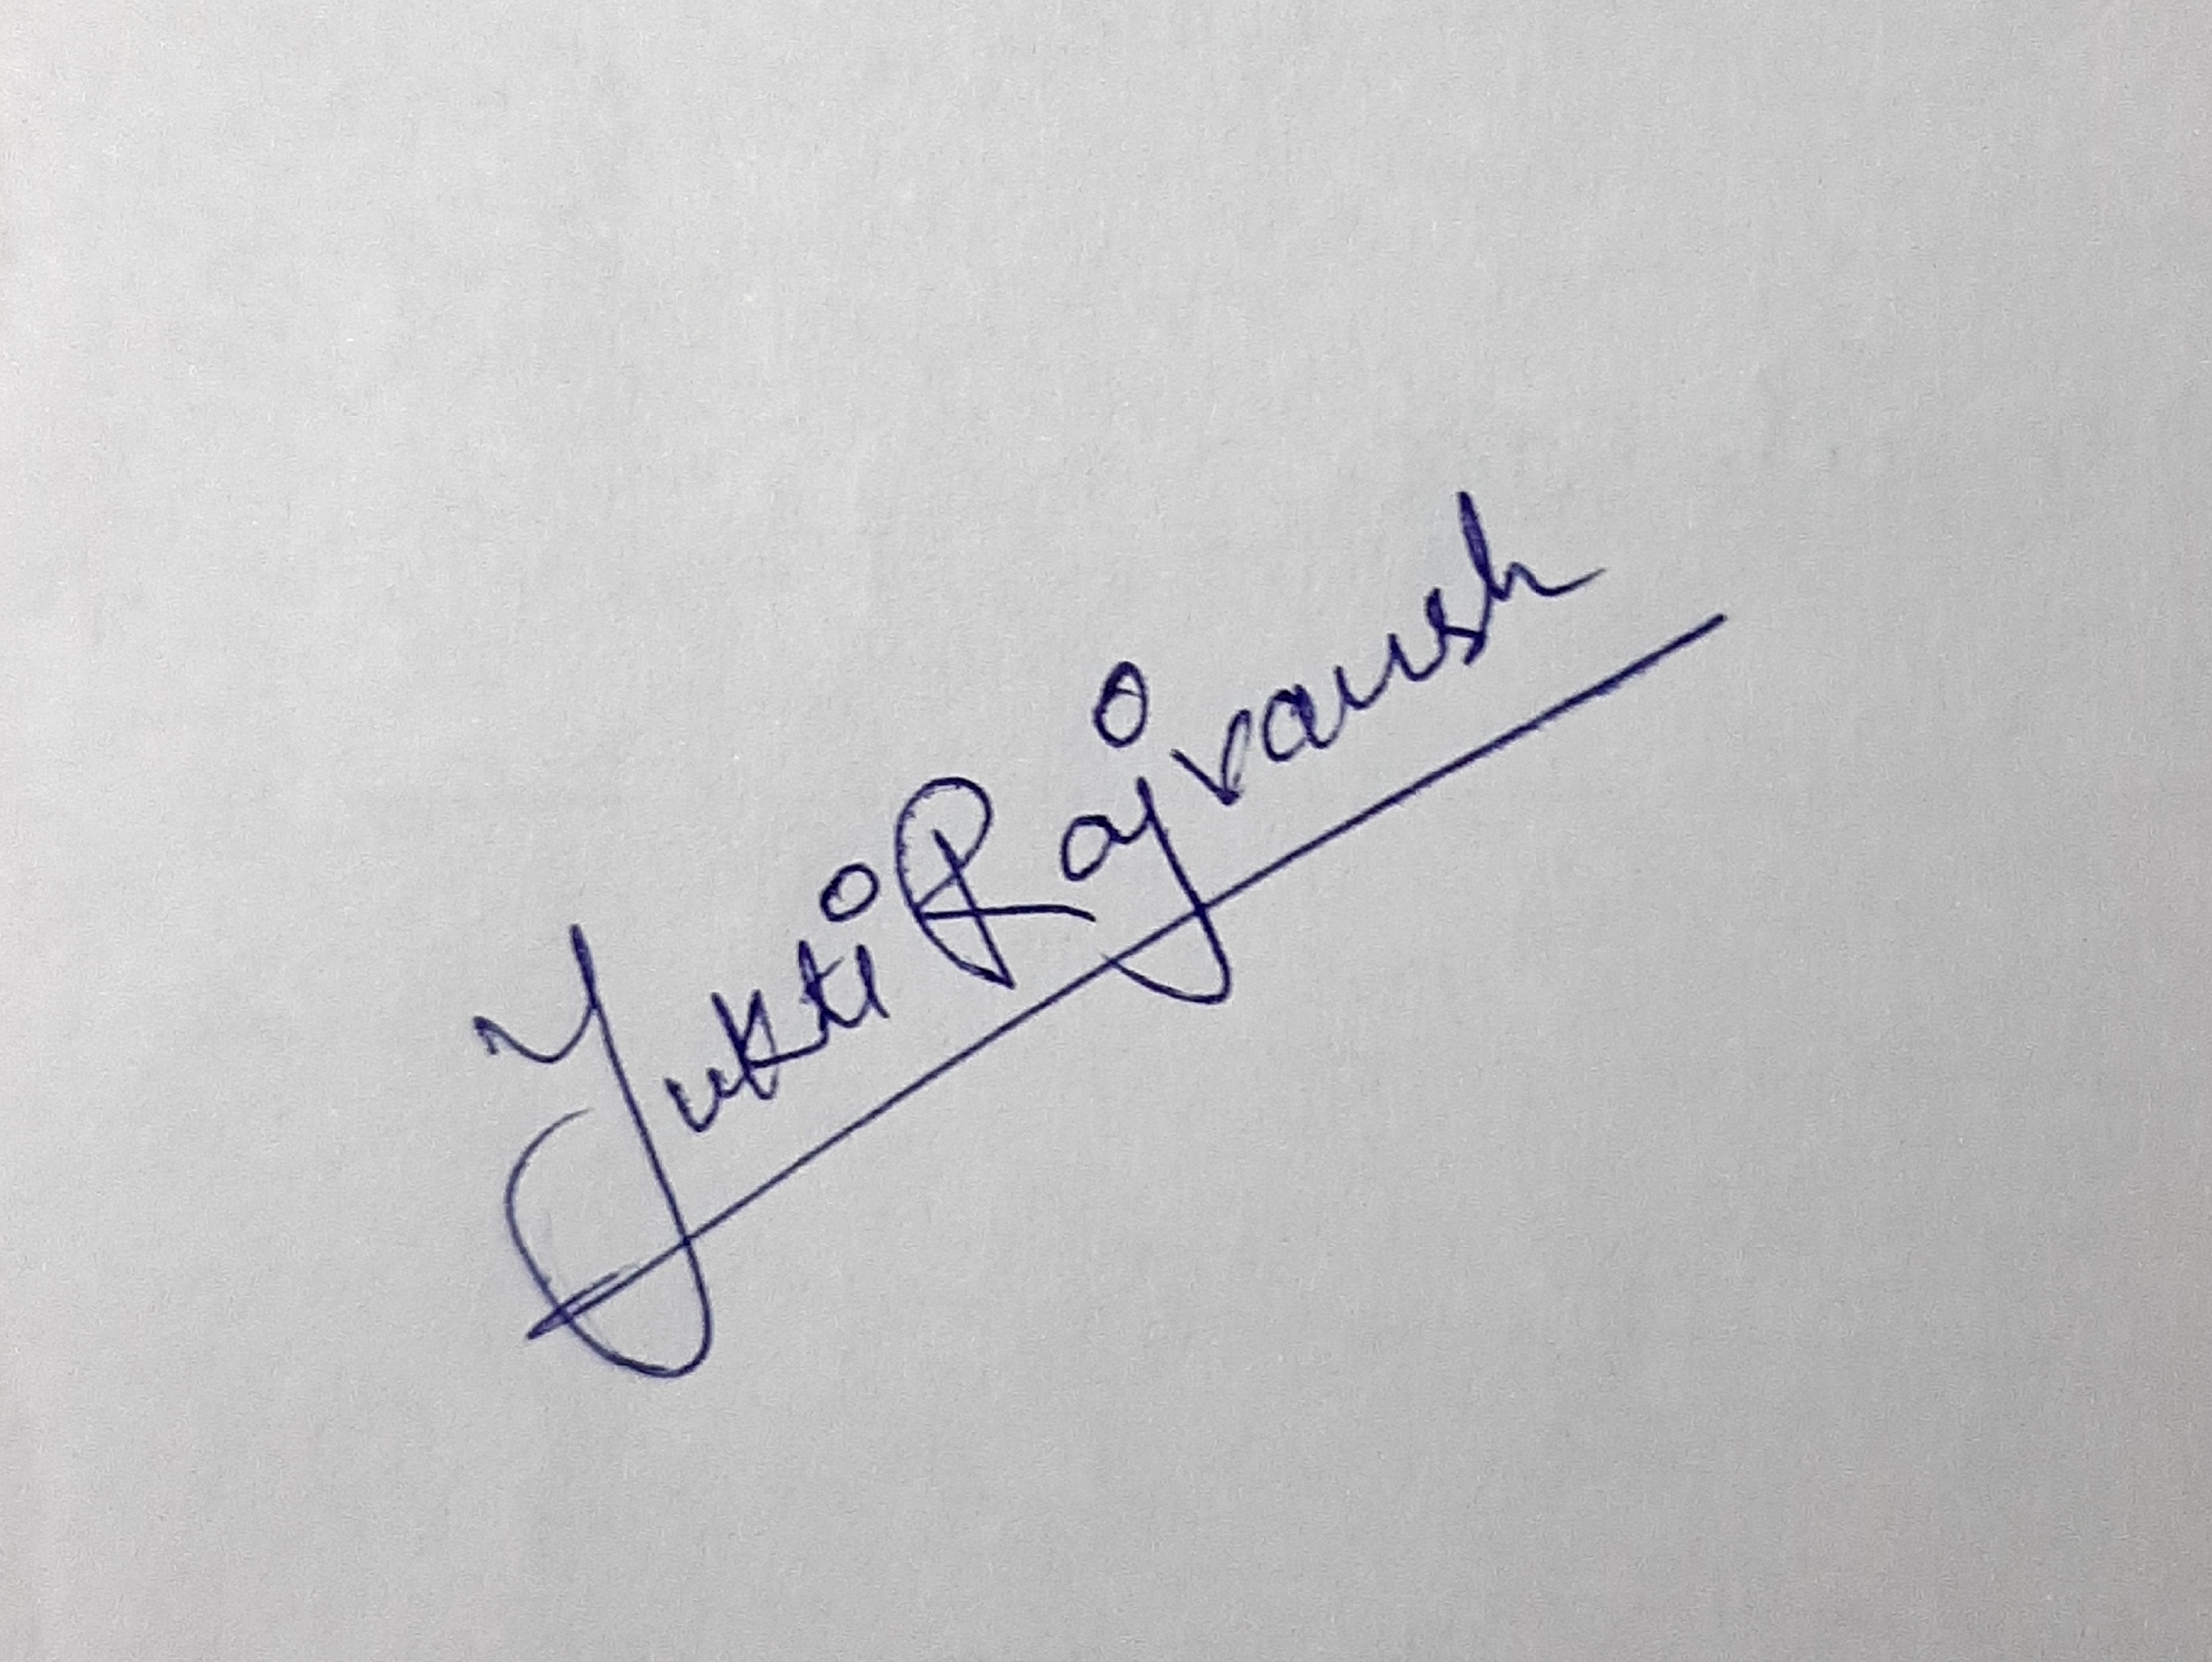 Yukti Rajvansh